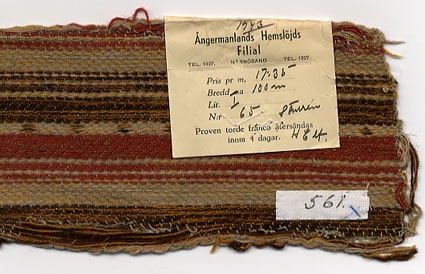 1943
Ångermanlands Hemslöjds
Filial
TEL. 1227. HÄRNÖSAND TEL. 1227.
Pris pr m. 17:35
Bredd ca 100 m
Lit.
N:r 65
Proven torde franco återsändas
inom 4 dagar.
561.